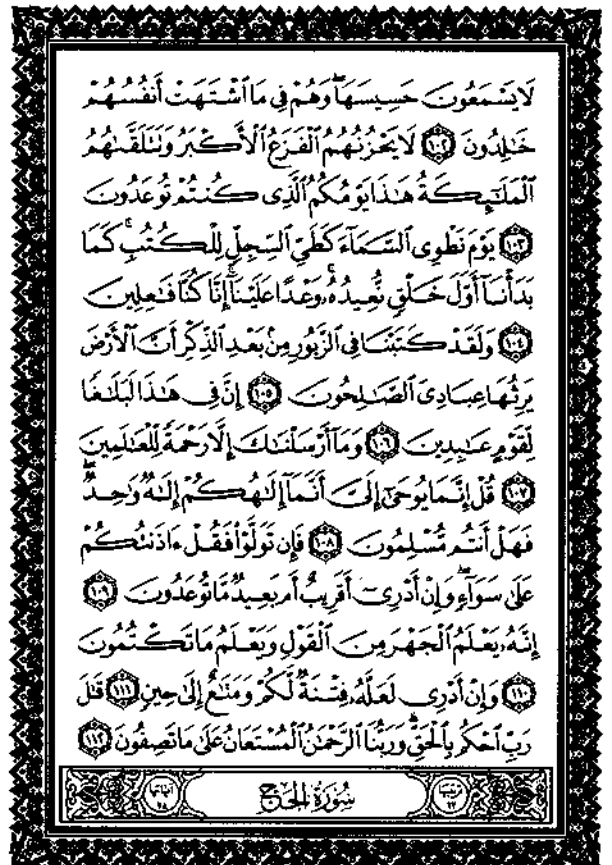 لَا يَسْمَعُونَ حَسِيسَهَا ۖ وَهُمْ فِي مَا ٱشْتَهَتْ أَنفُسُهُمْ
خَـٰلِدُونَ ١٠٢ لَا يَحْزُنُهُمُ ٱلْفَزَعُ ٱلْأَكْبَرُ وَتَتَلَقَّىٰهُمُ
ٱلْمَلَـٰٓئِكَةُ هَـٰذَا يَوْمُكُمُ ٱلَّذِى كُنتُمْ تُوعَدُونَ
١٠٣ يَوْمَ نَطْوِى ٱلسَّمَآءَ كَطَىِّ ٱلسِّجِلِّ لِلْكُتُبِ ۚ كَمَا
بَدَأْنَآ أَوَّلَ خَلْقٍ نُّعِيدُهُۥ ۚ وَعْدًا عَلَيْنَآ ۚ إِنَّا كُنَّا فَـٰعِلِينَ
١٠٤ وَلَقَدْ كَتَبْنَا فِى ٱلزَّبُورِ مِنۢ بَعْدِ ٱلذِّكْرِ أَنَّ ٱلْأَرْضَ
يَرِثُهَا عِبَادِىَ ٱلصَّـٰلِحُونَ ١٠٥ إِنَّ فِى هَـٰذَا لَبَلَـٰغًا
لِّقَوْمٍ عَـٰبِدِينَ ١٠٦ وَمَآ أَرْسَلْنَـٰكَ إِلَّا رَحْمَةً لِّلْعَـٰلَمِينَ
١٠٧ قُلْ إِنَّمَا يُوحَىٰٓ إِلَىَّ أَنَّمَآ إِلَـٰهُكُمْ إِلَـٰهٌ وَٰحِدٌ ۖ
فَهَلْ أَنتُم مُّسْلِمُونَ ١٠٨ فَإِن تَوَلَّوْا۟ فَقُلْ ءَاذَنتُكُمْ
عَلَىٰ سَوَآءٍ ۖ وَإِنْ أَدْرِىٓ أَقَرِيبٌ أَم بَعِيدٌ مَّا تُوعَدُونَ ١٠٩
إِنَّهُۥ يَعْلَمُ ٱلْجَهْرَ مِنَ ٱلْقَوْلِ وَيَعْلَمُ مَا تَكْتُمُونَ
١١٠ وَإِنْ أَدْرِى لَعَلَّهُۥ فِتْنَةٌ لَّكُمْ وَمَتَـٰعٌ إِلَىٰ حِينٍ ١١١ قَـٰلَ
رَبِّ ٱحْكُم بِٱلْحَقِّ ۗ وَرَبُّنَا ٱلرَّحْمَـٰنُ ٱلْمُسْتَعَانُ عَلَىٰ مَا تَصِفُونَ ١١٢
ترتيبها ٢٢ سُورَةُ الحَجّ آياتها ٧٨